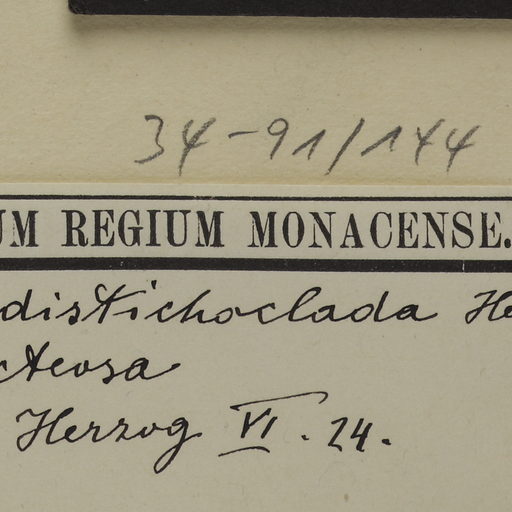 34-91/144
UM REGIUM MONACENSE.
distichoclada He
cteosa
Herzog VI. 24.